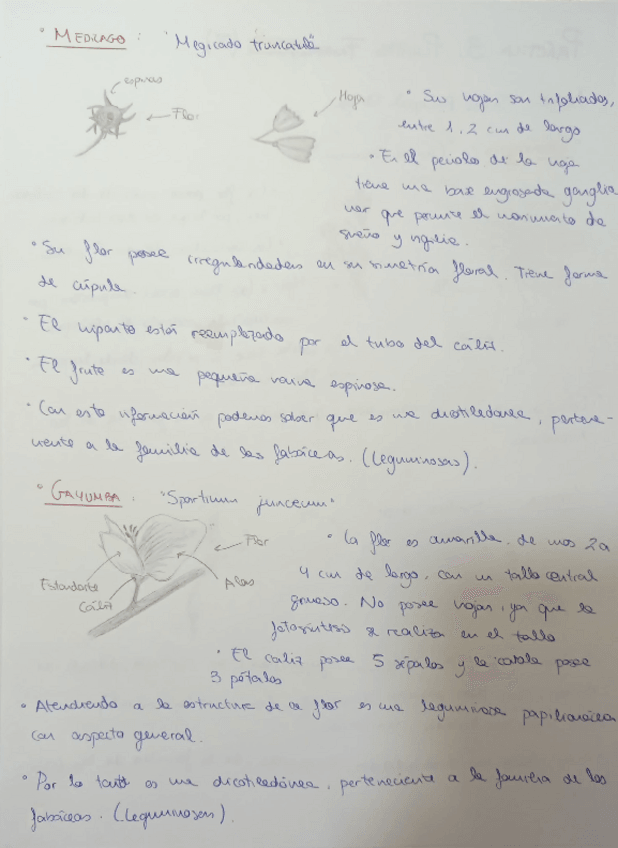 • MEDICAGO : "Megicado truncatula"
espinas
Flor
Hoja
• Sus hojas son trifoliadas,
entre 1, 2 cm de largo
• En el peciolo de la hoja
tiene una base engrosada ganglio
nar que permite el movimiento de
sueño y vigilia.
• Su flor posee irregularidades en su simetría floral. Tiene forma
de cúpula.
• El hipanto está reemplazado por el tubo del cáliz.
• El fruto es una pequeña vaina espinosa.
• Con esta información podemos saber que es una dicotiledónea, pertene-
ciente a la familia de las fabáceas. (Leguminosas).
• GAYUMBA : "Spartium junceum"
Flor
Estandarte
Cáliz
Alas
• La flor es amarilla, de unos 2 a
4 cm de largo, con un tallo central
grueso. No posee hojas, ya que la
fotosíntesis se realiza en el tallo
• El cáliz posee 5 sépalos y la corola posee
3 pétalos
• Atendiendo a la estructura de la flor es una leguminosa papilionácea
con aspecto general.
• Por lo tanto es una dicotiledónea, perteneciente a la familia de las
fabáceas. (Leguminosas).